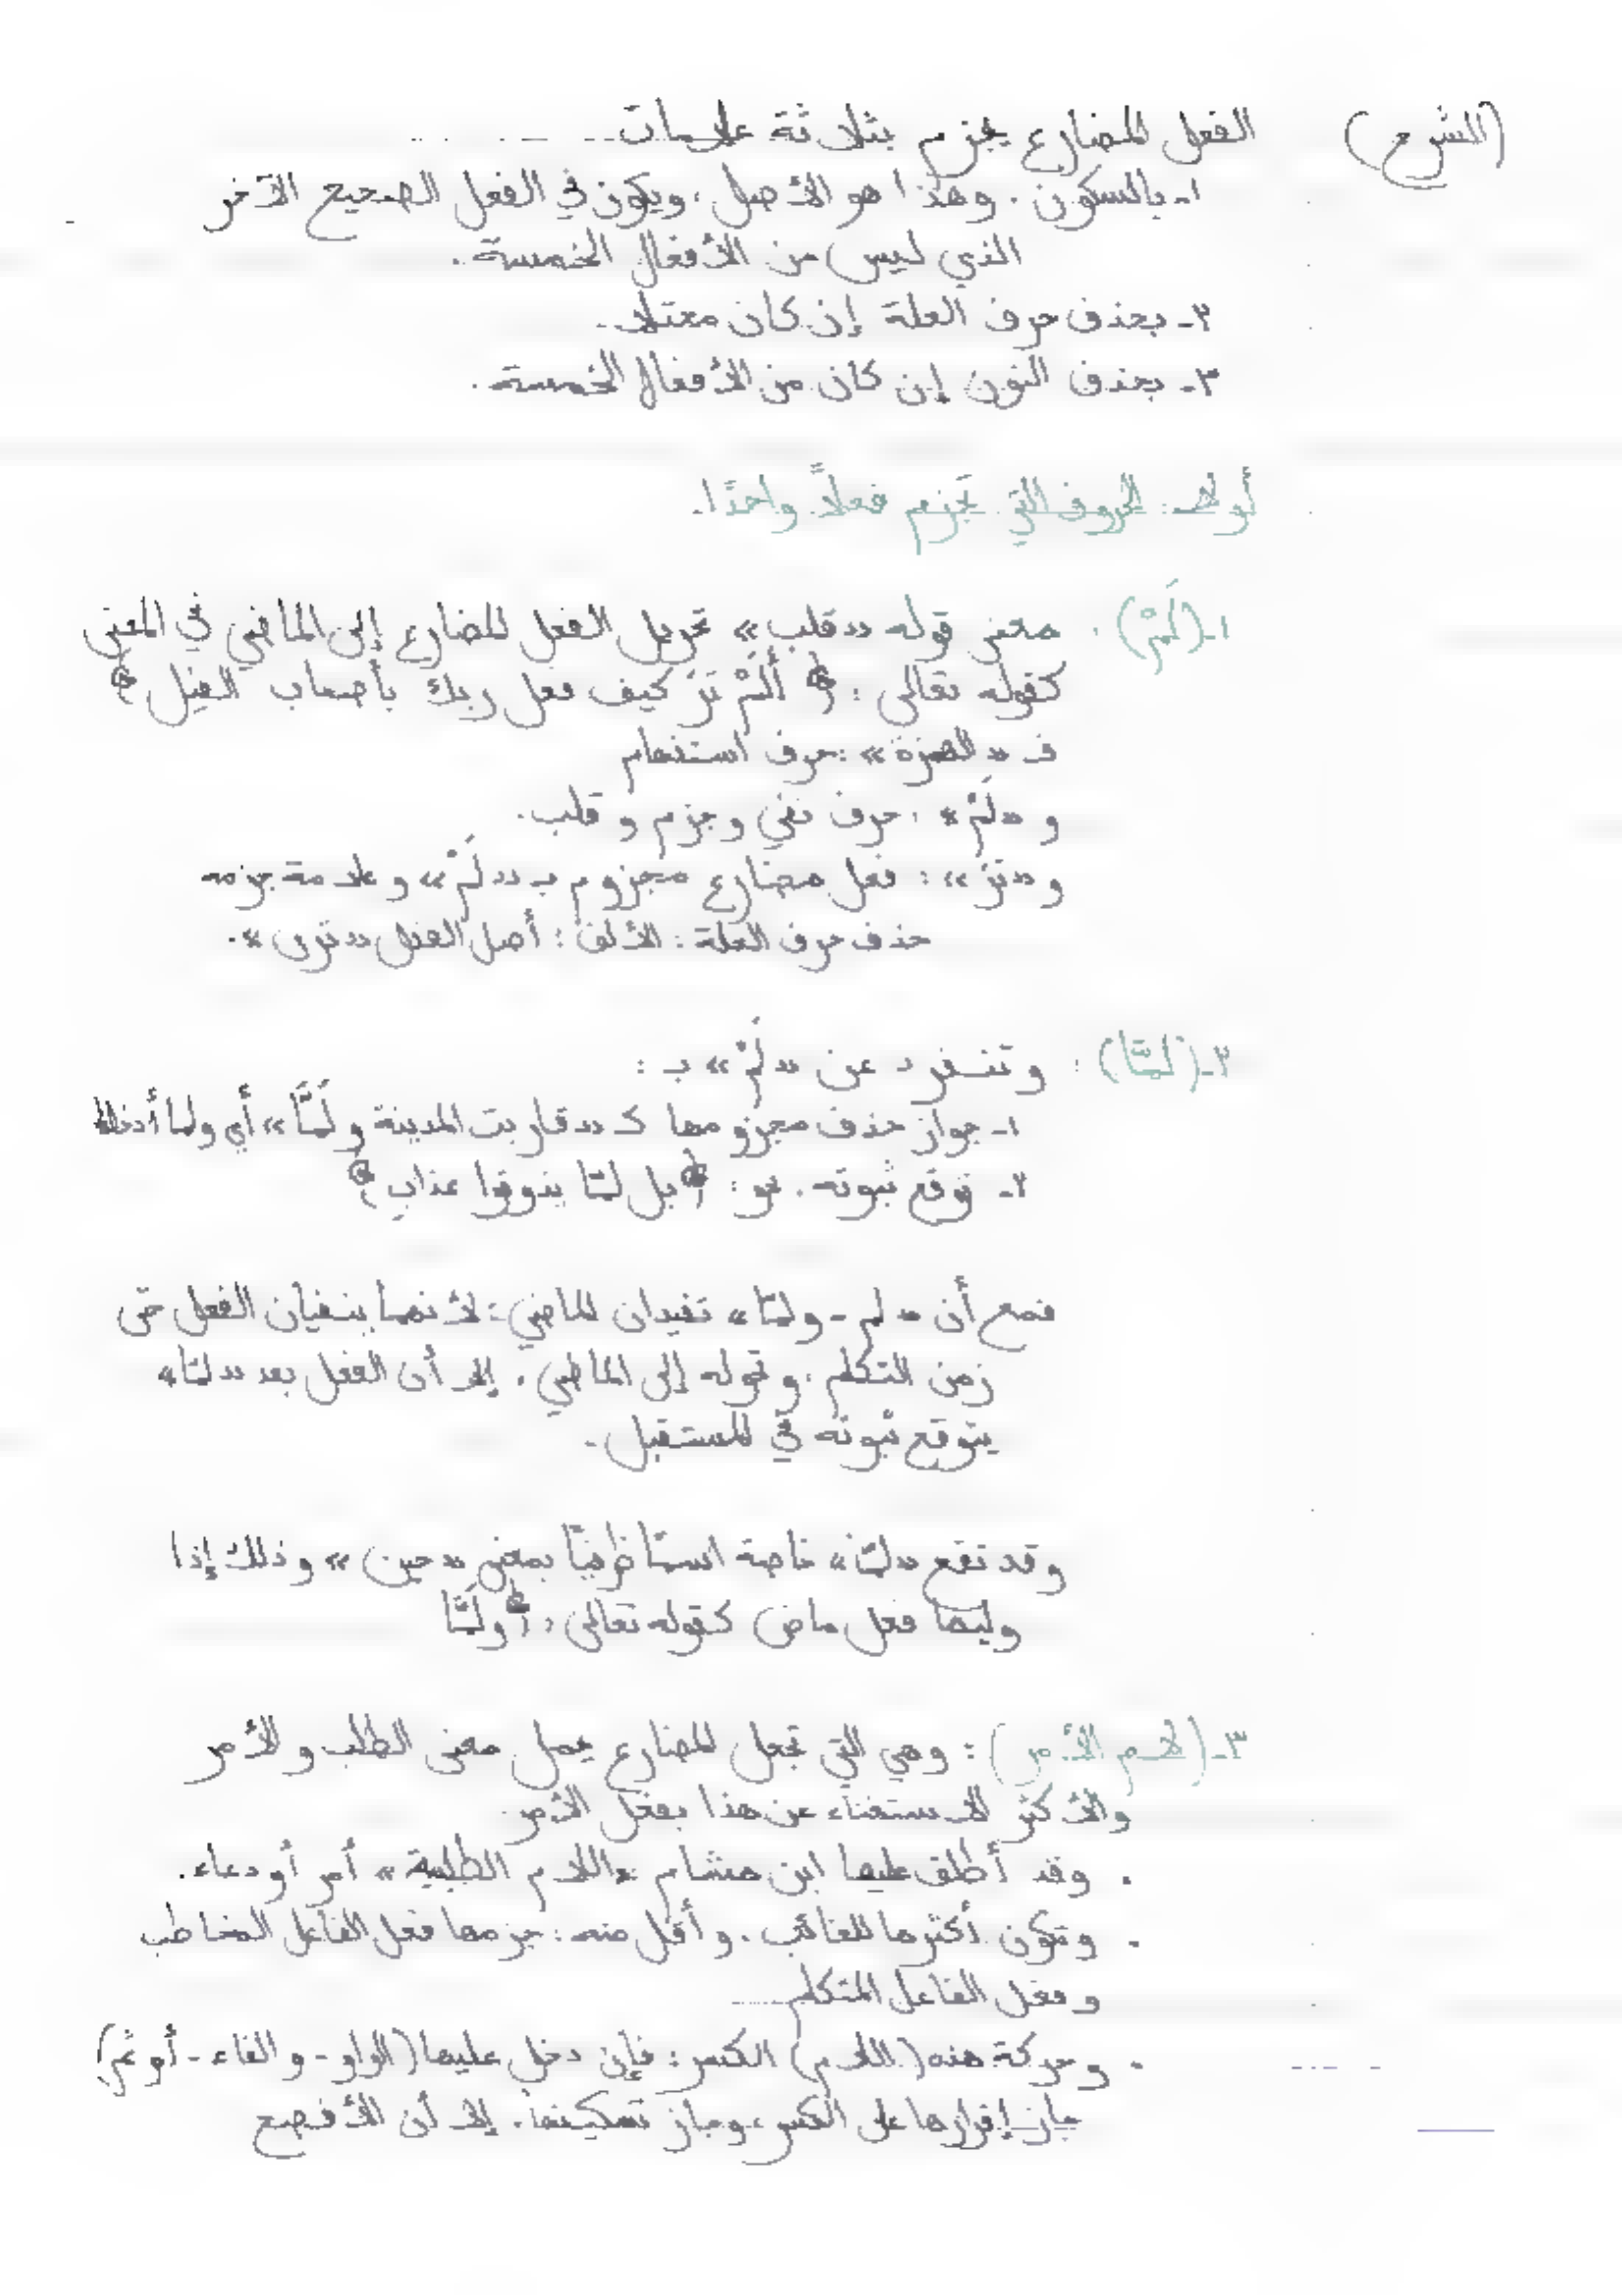 (الشرح) الفعل المضارع يجزم بثلاثة علامات
١- بالسكون. وهذا هو الأصل، ويكون في الفعل الصحيح الآخر
الذي ليس من الأفعال الخمسة.
٢- بحذف حرف العلة إن كان معتلا.
٣- بحذف النون إن كان من الأفعال الخمسة.
أولا: الحروف التي تَجزم فعلاً واحدًا.
١-(لَمْ). معنى قوله «قلب» تحويل الفعل المضارع إلى الماضي في المعنى
كقوله تعالى: ﴿ أَلَمْ تَرَ كيف فعل ربك بأصحاب الفيل ﴾
فـ «الهمزة»: حرف استفهام
و «لَمْ»: حرف نفي وجزم و قلب.
و «تَرَ»: فعل مضارع مجزوم بـ «لَمْ» و علامة جزمه
حذف حرف العلة: الألف: أصل الفعل «ترى».
٢-(لمَّا): وتنفرد عن «لَمْ» بـ:
١- جواز حذف مجزومها كـ «قاربت المدينة ولَمَّا» أي ولما أدخلها
٢- توقع ثبوته. نحو: ﴿بل لمَّا يذوقوا عذاب﴾
فمع أن «لم - ولمَّا» تفيدان الماضي: لأنهما ينفيان الفعل حتى
زمن التكلم، و تحوله إلى الماضي. إلا أن الفعل بعد «لمَّا»
يتوقع ثبوته في المستقبل.
وقد تقع «لمَّا» خاصة اسمًا ظرفيًا بمعنى «حين» وذلك إذا
وليها فعل ماض كقوله تعالى: ﴿ولَمَّا
٣-(لام الأمر): وهي التي تجعل المضارع يحمل معنى الطلب والأمر
والأكثر الاستغناء عن هذا بفعل الأمر.
. وقد أطلق عليها ابن هشام «اللام الطلبية» أمر أو دعاء.
. وتكون أكثرها للغائب. وأقل منه: جزمها فعل الفاعل المخاطب
وفعل الفاعل المتكلم
. وحركة هذه (اللام) الكسر: فإن دخل عليها (الواو - والفاء - أو ثم)
جاز إقرارها على الكسر، وجاز تسكينها. إلا أن الأفصح